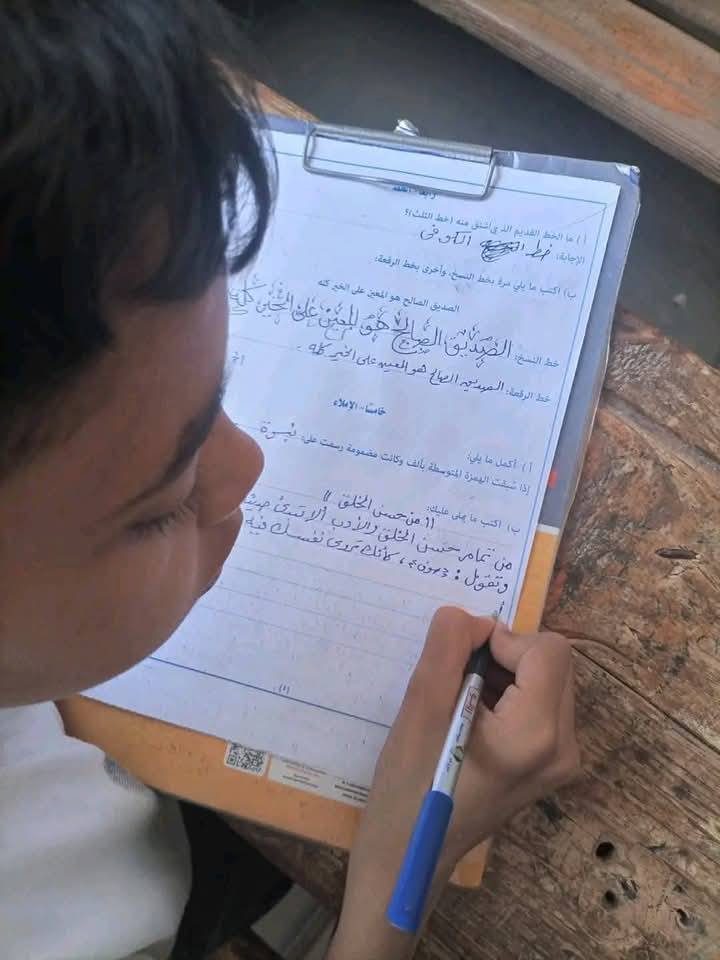 رابعًا - الخط
أ ) ما الخط القديم الذي اشتق منه (خط الثلث)؟
الإجابة: خط الكوفي
ب) اكتب ما يلي مرة بخط النسخ، وأخرى بخط الرقعة:
الصديق الصالح هو المعين على الخير كله
خط النسخ: الصديق الصالح هو المعين على الخير كله
خط الرقعة: الصديق الصالح هو المعين على الخير كله .
خامسًا - الإملاء
أ ) أكمل ما يلي:
إذا سُبقت الهمزة المتوسطة بألف وكانت مضمومة رسمت على: نبرة
ب) اكتب ما يملى عليك:
" من حسن الخلق "
من تمام حسن الخلق والأدب ألا تبدئ
وتقول : ، كأنك ترى نفسك فيه
(٤)